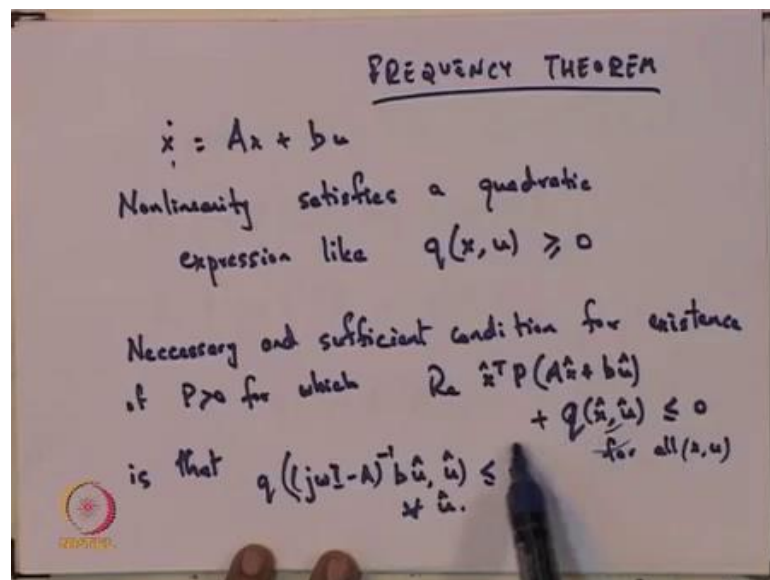 FREQUENCY THEOREM
ẋ = Ax + bu
Nonlinearity satisfies a quadratic
expression like q(x, u) ⩾ 0
Neccessary and sufficient condition for existence
of P>0 for which Re x̂ᵀP(Ax̂ + bû)
+ q(x̂, û) ≤ 0
for all (x, u)
is that q((jωI-A)⁻¹bû, û) ≤
∀ û.
NPTEL